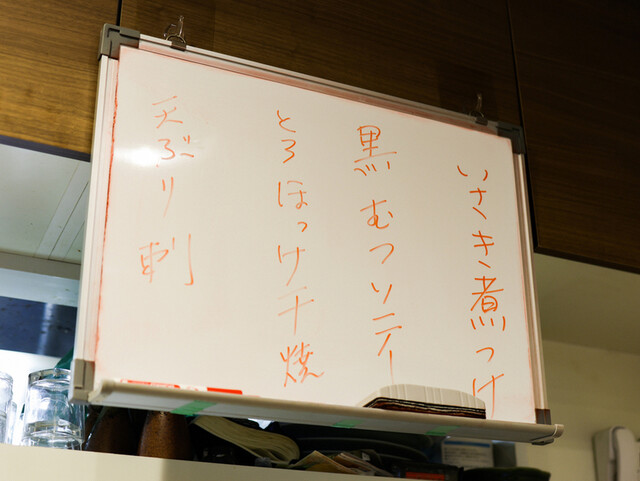 いさき煮つけ
黒むつソテー
とろほっけ干焼
天ぶり刺